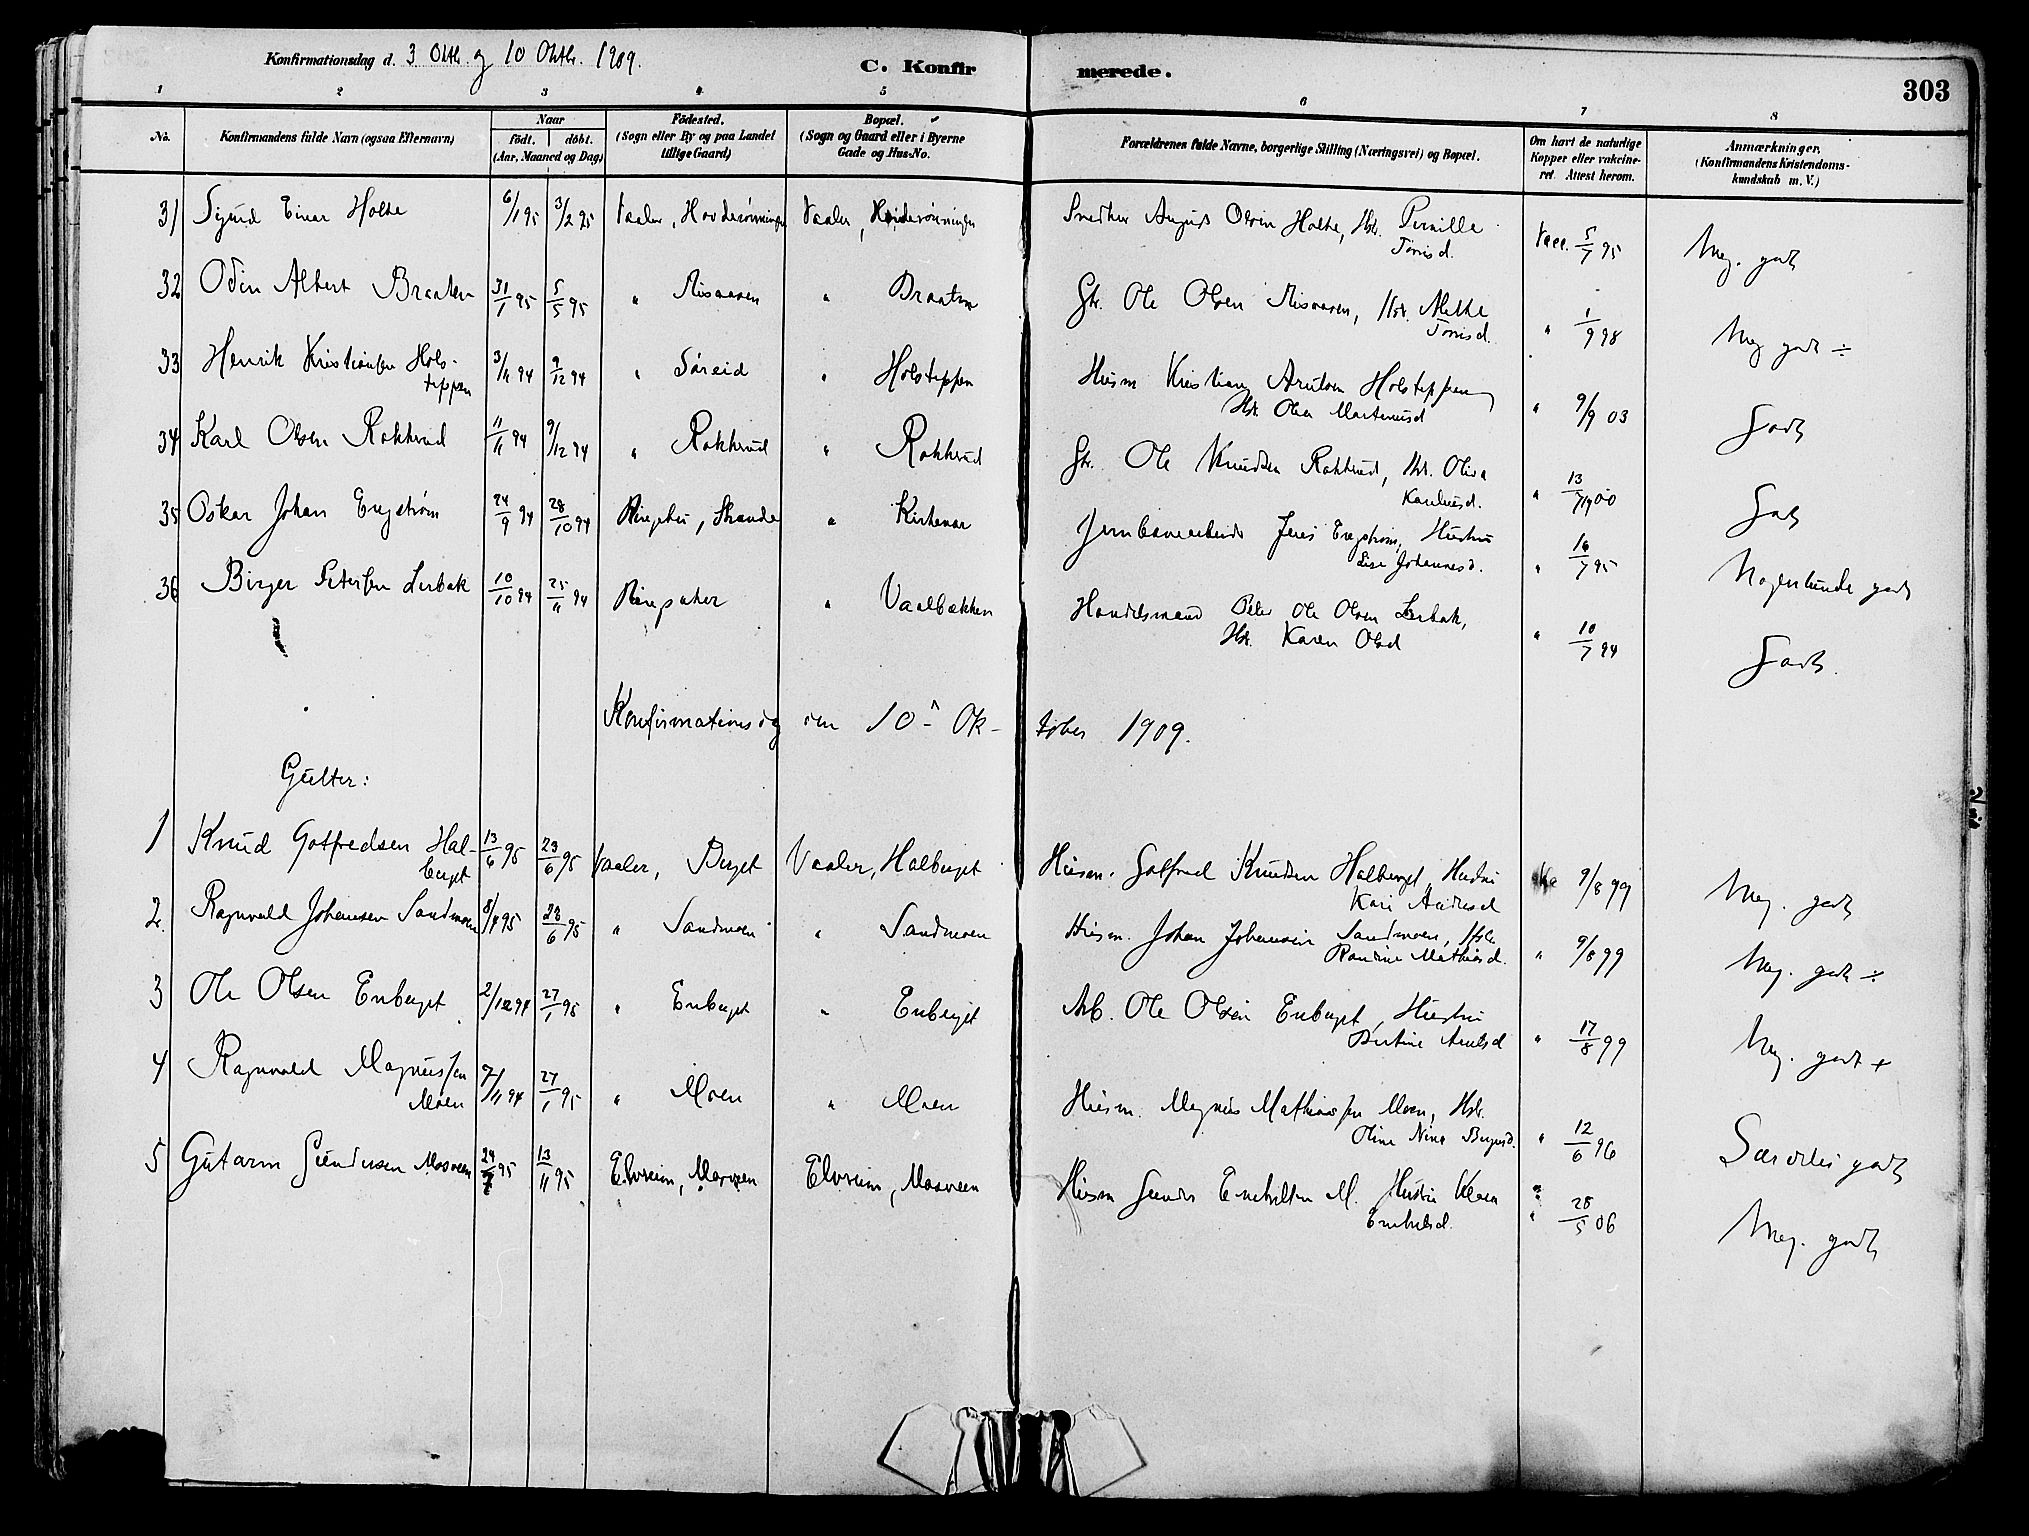 Konfirmationsdag d. 3 Oktb. og 10 Oktbr. 1909.
C. Konfirmerede.
303
1 2 3 4 5 6 7 8
No. Konfirmandens fulde Navn (ogsaa Efternavn) Naar født. døbt. (Aar, Maaned og Dag) Fødested. (Sogn eller By og paa Landet tillige Gaard) Bopæl. (Sogn og Gaard eller i Byerne Gade og Hus-No. Forældrenes fulde Navne, borgerlige Stilling (Næringsvei) og Bopæl. Om havt de naturlige Kopper eller vakcineret. Attest herom. Anmærkninger. (Konfirmandens Kristendomskundskab m. V.)
31 Sigurd Einar Holte 6/1 95 3/2 95 Vaaler, Vaaler, Snedker August Olsen Holte, Hst. Pernille
Tørrisd. Vacc. 5/7 95 Meg. godt
32 Odin Albert Braaten 31/1 95 5/5 95 " Risaasen " Braaten Gbr. Ole Olsen Risaasen, Hst. Mathe
Tørrisd. " 1/9 98 Meg godt ÷
33 Henrik Kristiansen Hols-
teppen 3/11 94 9/12 94 " Søreid " Holsteppen Husm Kristian Arntsen Holsteppen
Hst. Olea Martinusd " 9/9 03 Godt
34 Karl Olsen Rokkerud 11/11 94 9/12 94 " Rokkerud " Rokkerud Gbr. Ole Knudsen Rokkerud, Hst. Oliva
Karelиusd. " 13/7 1900 Godt
35 Oskar Johan Engstrøm 24/9 94 28/10 94 Ringebu, Strande " Kirkenær Jernbanearbeider Jens Engstrøm, Hustru
Lise Johannesd. " 16/7 95 Nogenlunde godt
36 Birger Petersen Lerbak 10/10 94 25/11 94 Ringsaker " Vaalbækken Handelsmand Peter Ole Olsen Lerbak,
Hst. Karen Olsd " 10/7 94 Godt.
Konfirmationsdag den 10de Oktober 1909.
Gutter:
1 Knud Gotfredsen Hal-
berget 13/6 95 23/6 95 Vaaler, Berget Vaaler, Halberget Husm. Gotfred Knudsen Halberget, Hustru
Kari Andresd 9/8 99 Meg. godt
2. Ragnvald Johansen Sandmoen 8/4 95 23/6 95 " Sandmoen " Sandmoen Husm. Johan Johansen Sandmoen, Hst.
Randine Mathisd. " 9/8 99 Meg. godt ÷
3 Ole Olsen Enberget 2/12 94 27/1 95 " Enberget " Enberget Arb. Ole Olsen Enberget, Hustru
Bertine Arntsd " 17/8 99 Meg. godt +
4 Ragnvald Magnussen
Moen 7/11 94 27/1 95 " Moen " Moen Husm. Magnus Mathiassen Moen, Hst.
Oline Nina " 12/6 96 Særdeles godt
5 Gutorm Gundersen Mosveen 24/7 95 13/11 95 Elverum, Mosveen Elverum, Mosveen Husm Gunder Embretsen M. Hustru
Embretsd. " 28/5 06 Meg. godt